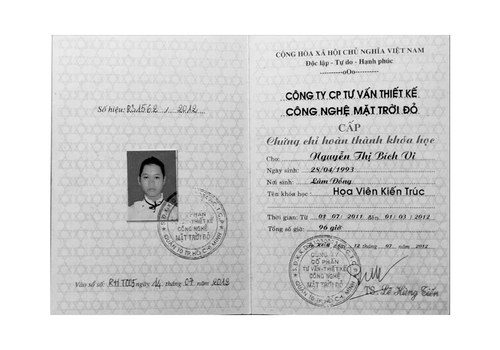 Số hiệu: RS1562 / 2012
BAN
THIẾT KẾ
CÔNG NGHỆ
MẶT TRỜI ĐỎ
Vào sổ số: ngày 14 tháng 07 năm 2012
CỘNG HÒA XÃ HỘI CHỦ NGHĨA VIỆT NAM
Độc lập - Tự do - Hạnh phúc
----------oOo----------
CÔNG TY CP TƯ VẤN THIẾT KẾ
CÔNG NGHỆ MẶT TRỜI ĐỎ
CẤP
Chứng chỉ hoàn thành khóa học
Cho: Nguyễn Thị Bích Vi
Ngày sinh: 28/04/1993
Nơi sinh: Lâm Đồng
Tên khóa học: Họa Viên Kiến Trúc
Thời gian: Từ 01/07/2011 đến 01/03/2012
Tổng số giờ: 96 giờ
12 tháng 07 năm 2012
CÔNG TY
CỔ PHẦN
TƯ VẤN-THIẾT KẾ
CÔNG NGHỆ
MẶT TRỜI ĐỎ
TS. Lê Hùng Tiến